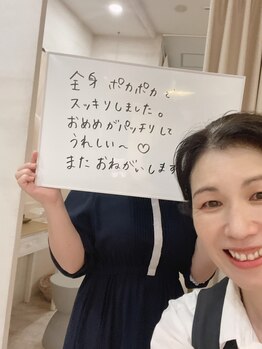 全身 ポカポカで
スッキリしました。
おめめがパッチリして
うれしい〜 ♡
また おねがいします